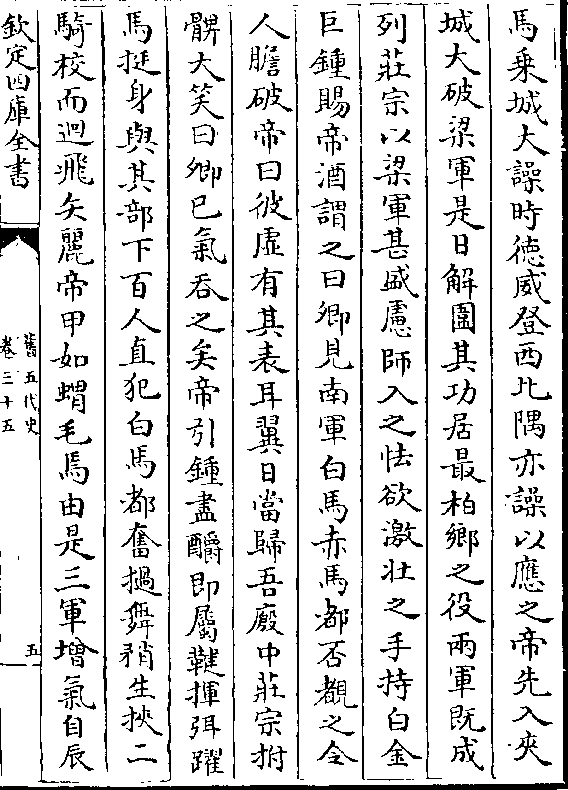 馬乗城大譟時徳威登西北隅亦譟以應之帝先入夾
城大破梁軍是日解圍其功居最柏鄉之役兩軍既成
列莊宗以梁軍甚盛慮師人之怯欲激壯之手持白金
巨鍾賜帝酒謂之曰卿見南軍白馬赤馬都否覩之令
人膽破帝曰彼虛有其表耳翼日當歸吾廐中莊宗拊
髀大笑曰卿已氣吞之矣帝引鍾盡釂即屬鞬揮弭躍
馬挺身與其部下百人直犯白馬都奮撾舞矟生挾二
騎校而迴飛矢麗帝甲如蝟毛焉由是三軍增氣自辰
欽定四庫全書
舊五代史
卷三十五
五